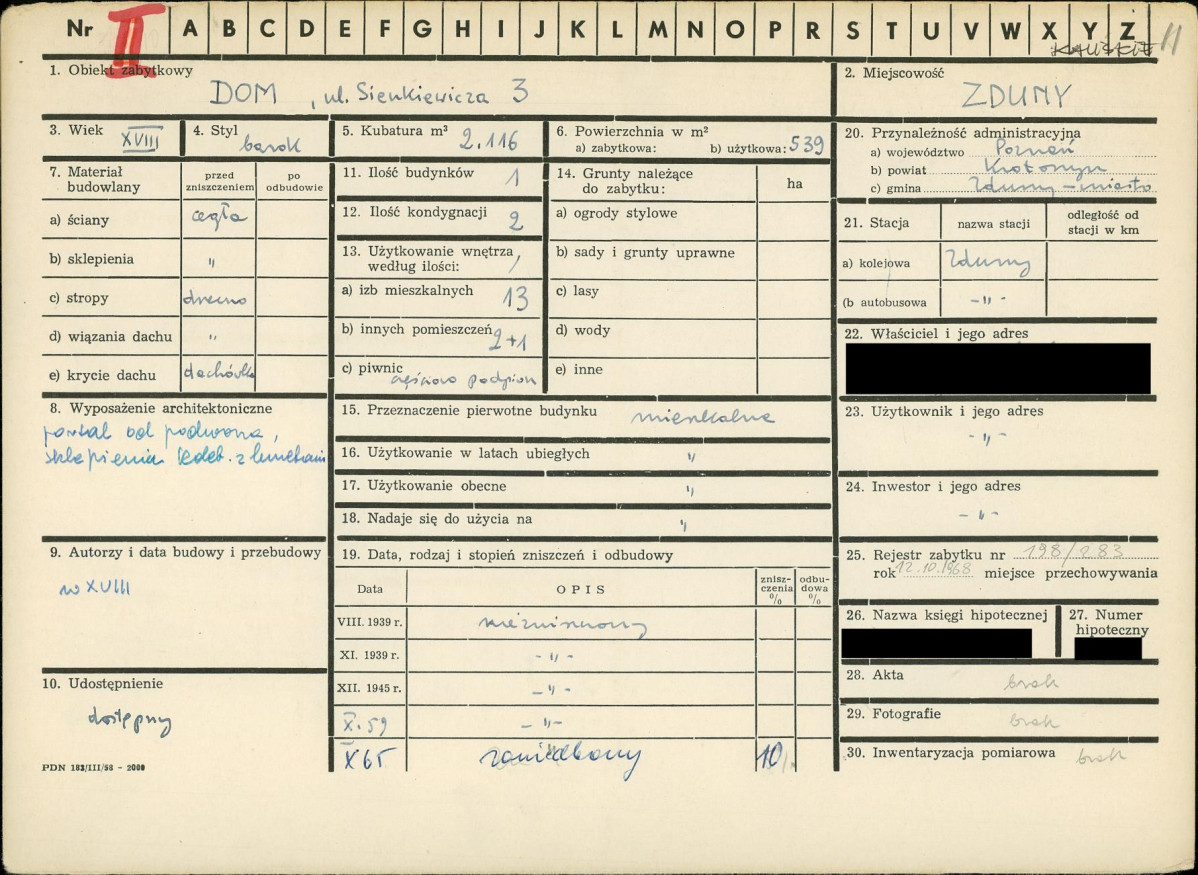 Nr II A B C D E F G H I J K L M N O P R S T U V W X Y Z
KALISKIE 11
1. Obiekt zabytkowy
DOM, ul. Sienkiewicza 3
2. Miejscowość
ZDUNY
3. Wiek XVIII
4. Styl barok
5. Kubatura m³ 2.116
6. Powierzchnia w m²
a) zabytkowa: b) użytkowa: 539
7. Materiał budowlany
przed zniszczeniem
po odbudowie
a) ściany cegła
b) sklepienia "
c) stropy drewno
d) wiązania dachu "
e) krycie dachu dachówka
8. Wyposażenie architektoniczne
portal od podwórza,
sklepienia koleb. z lunetami
9. Autorzy i data budowy i przebudowy
w XVIII
10. Udostępnienie
dostępny
PDN 183/III/58 - 2000
11. Ilość budynków 1
12. Ilość kondygnacji 2
13. Użytkowanie wnętrza
według ilości:
a) izb mieszkalnych 13
b) innych pomieszczeń 2+1
c) piwnic częściowo podpiwn
14. Grunty należące
do zabytku:
ha
a) ogrody stylowe
b) sady i grunty uprawne
c) lasy
d) wody
e) inne
15. Przeznaczenie pierwotne budynku mieszkalne
16. Użytkowanie w latach ubiegłych "
17. Użytkowanie obecne "
18. Nadaje się do użycia na "
19. Data, rodzaj i stopień zniszczeń i odbudowy
Data
OPIS
zniszczenia %
odbudowa %
VIII. 1939 r. niezniszczony
XI. 1939 r. - " -
XII. 1945 r. - " -
X. 59 - " -
X 65 zaniedbany 10%
20. Przynależność administracyjna
a) województwo Poznań
b) powiat Krotoszyn
c) gmina Zduny - miasto
21. Stacja
nazwa stacji
odległość od
stacji w km
a) kolejowa Zduny
(b autobusowa - " -
22. Właściciel i jego adres
23. Użytkownik i jego adres
- " -
24. Inwestor i jego adres
- " -
25. Rejestr zabytku nr 198/283
rok 12.10.1968 miejsce przechowywania
26. Nazwa księgi hipotecznej
27. Numer
hipoteczny
28. Akta brak
29. Fotografie brak
30. Inwentaryzacja pomiarowa brak